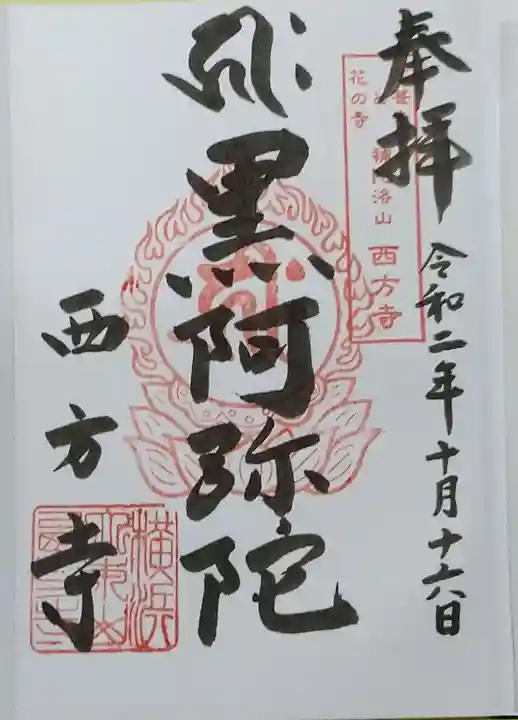 奉拝
令和二年十月十六日
花の寺
補陀洛山 西方寺
黒阿弥陀
西方寺
横浜